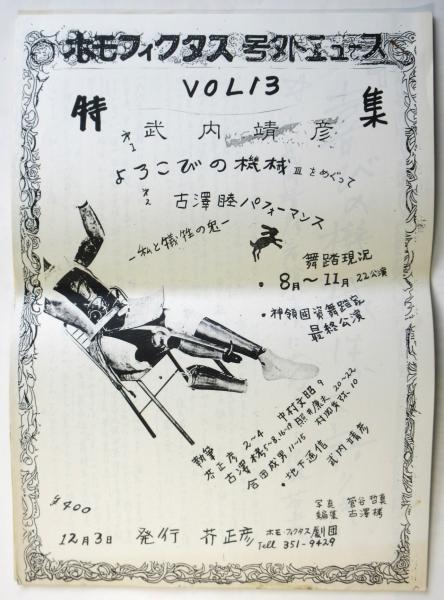 ホモフィクタス 号外ニュース
VOL13
特集
オ1 武内靖彦
よろこびの機械Ⅲをめぐって
オ2 古澤睦パフォーマンス
―私と犠牲の兎―
舞踏現況
・8月〜11月 22公演
・神領國資舞踏家
最終公演
執筆
芥正彦 2〜4
古澤 5〜8.16〜19
合田成男 11〜15
中村文昭 9
照井康夫 20〜22
村田 10
・地下通信
武内靖彦
¥400
写真 菅谷
編集 古澤
12月3日 発行 芥正彦 ホモ・フィクタス劇団
Tell 351-9429